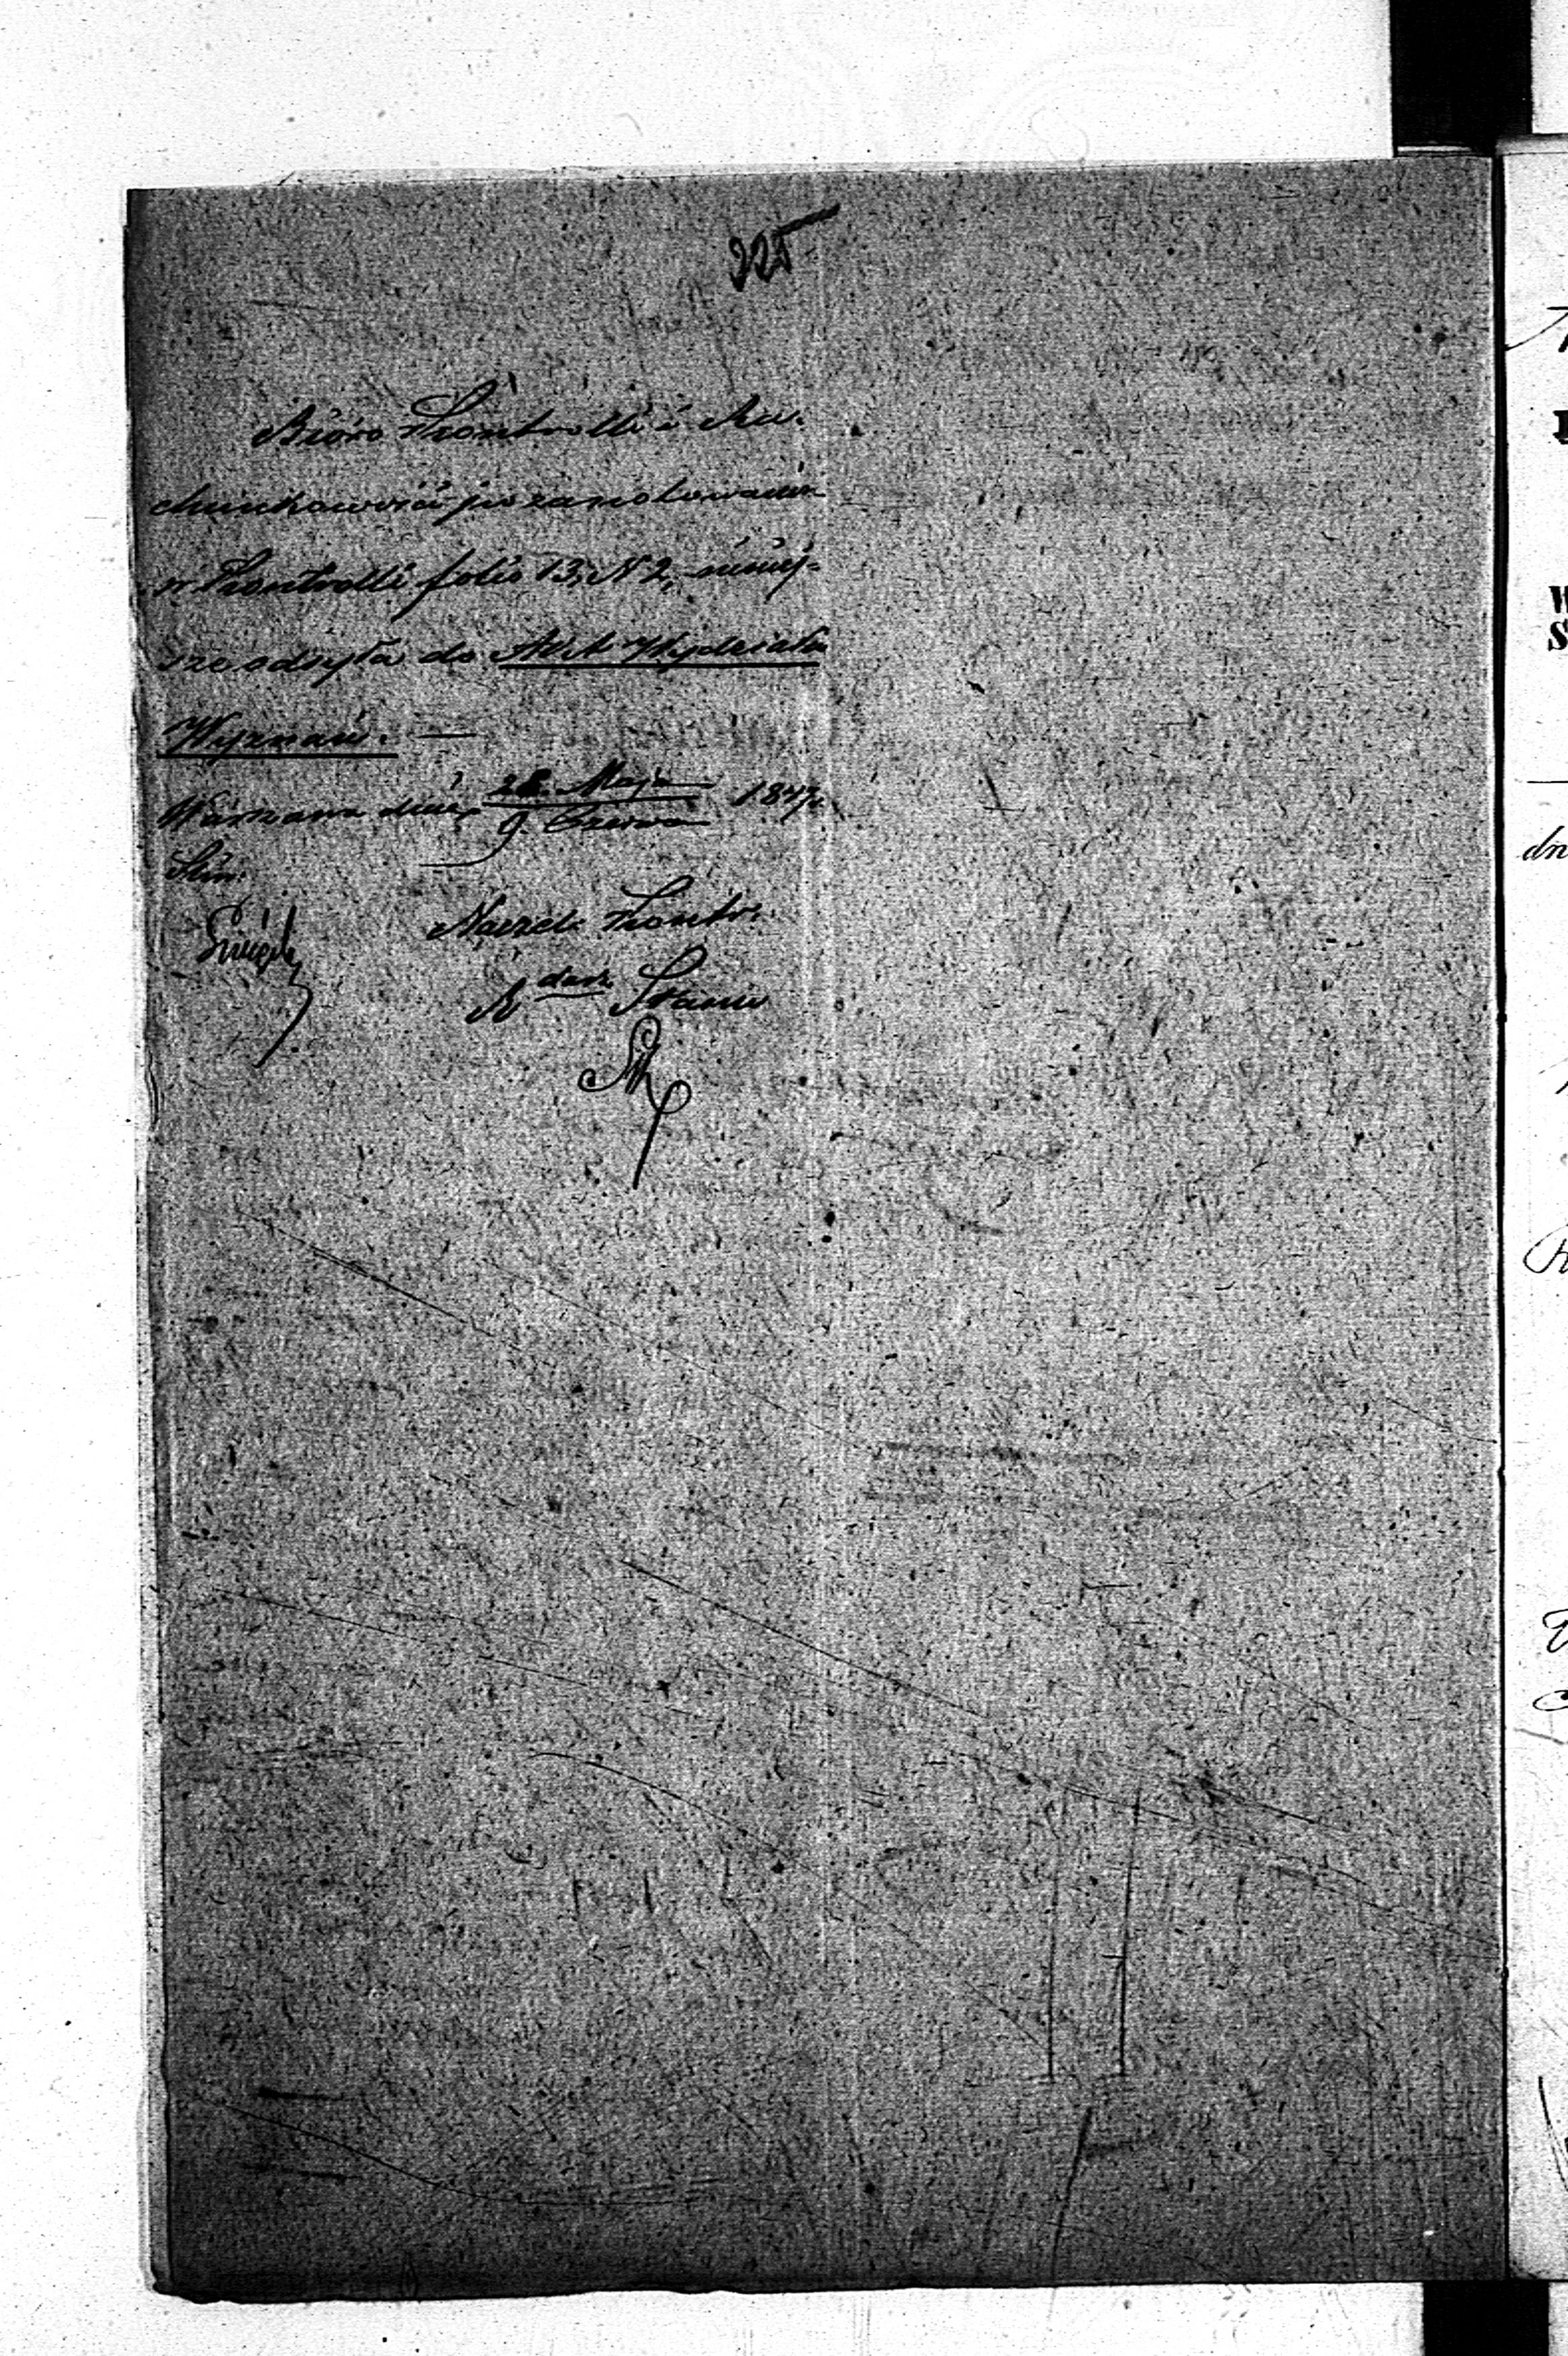 225
Bióro Kontrolli i Ra-
chunkowości po zanotowaniu
w Kontrolli folio 13, N 2, niniej-
sze odsyła do Akt Wydziału
Wyznań. —
Warszawa dnia 28 Maja / 9 Czerwca 1847 r.
Naczel: Kontr:
Stanu